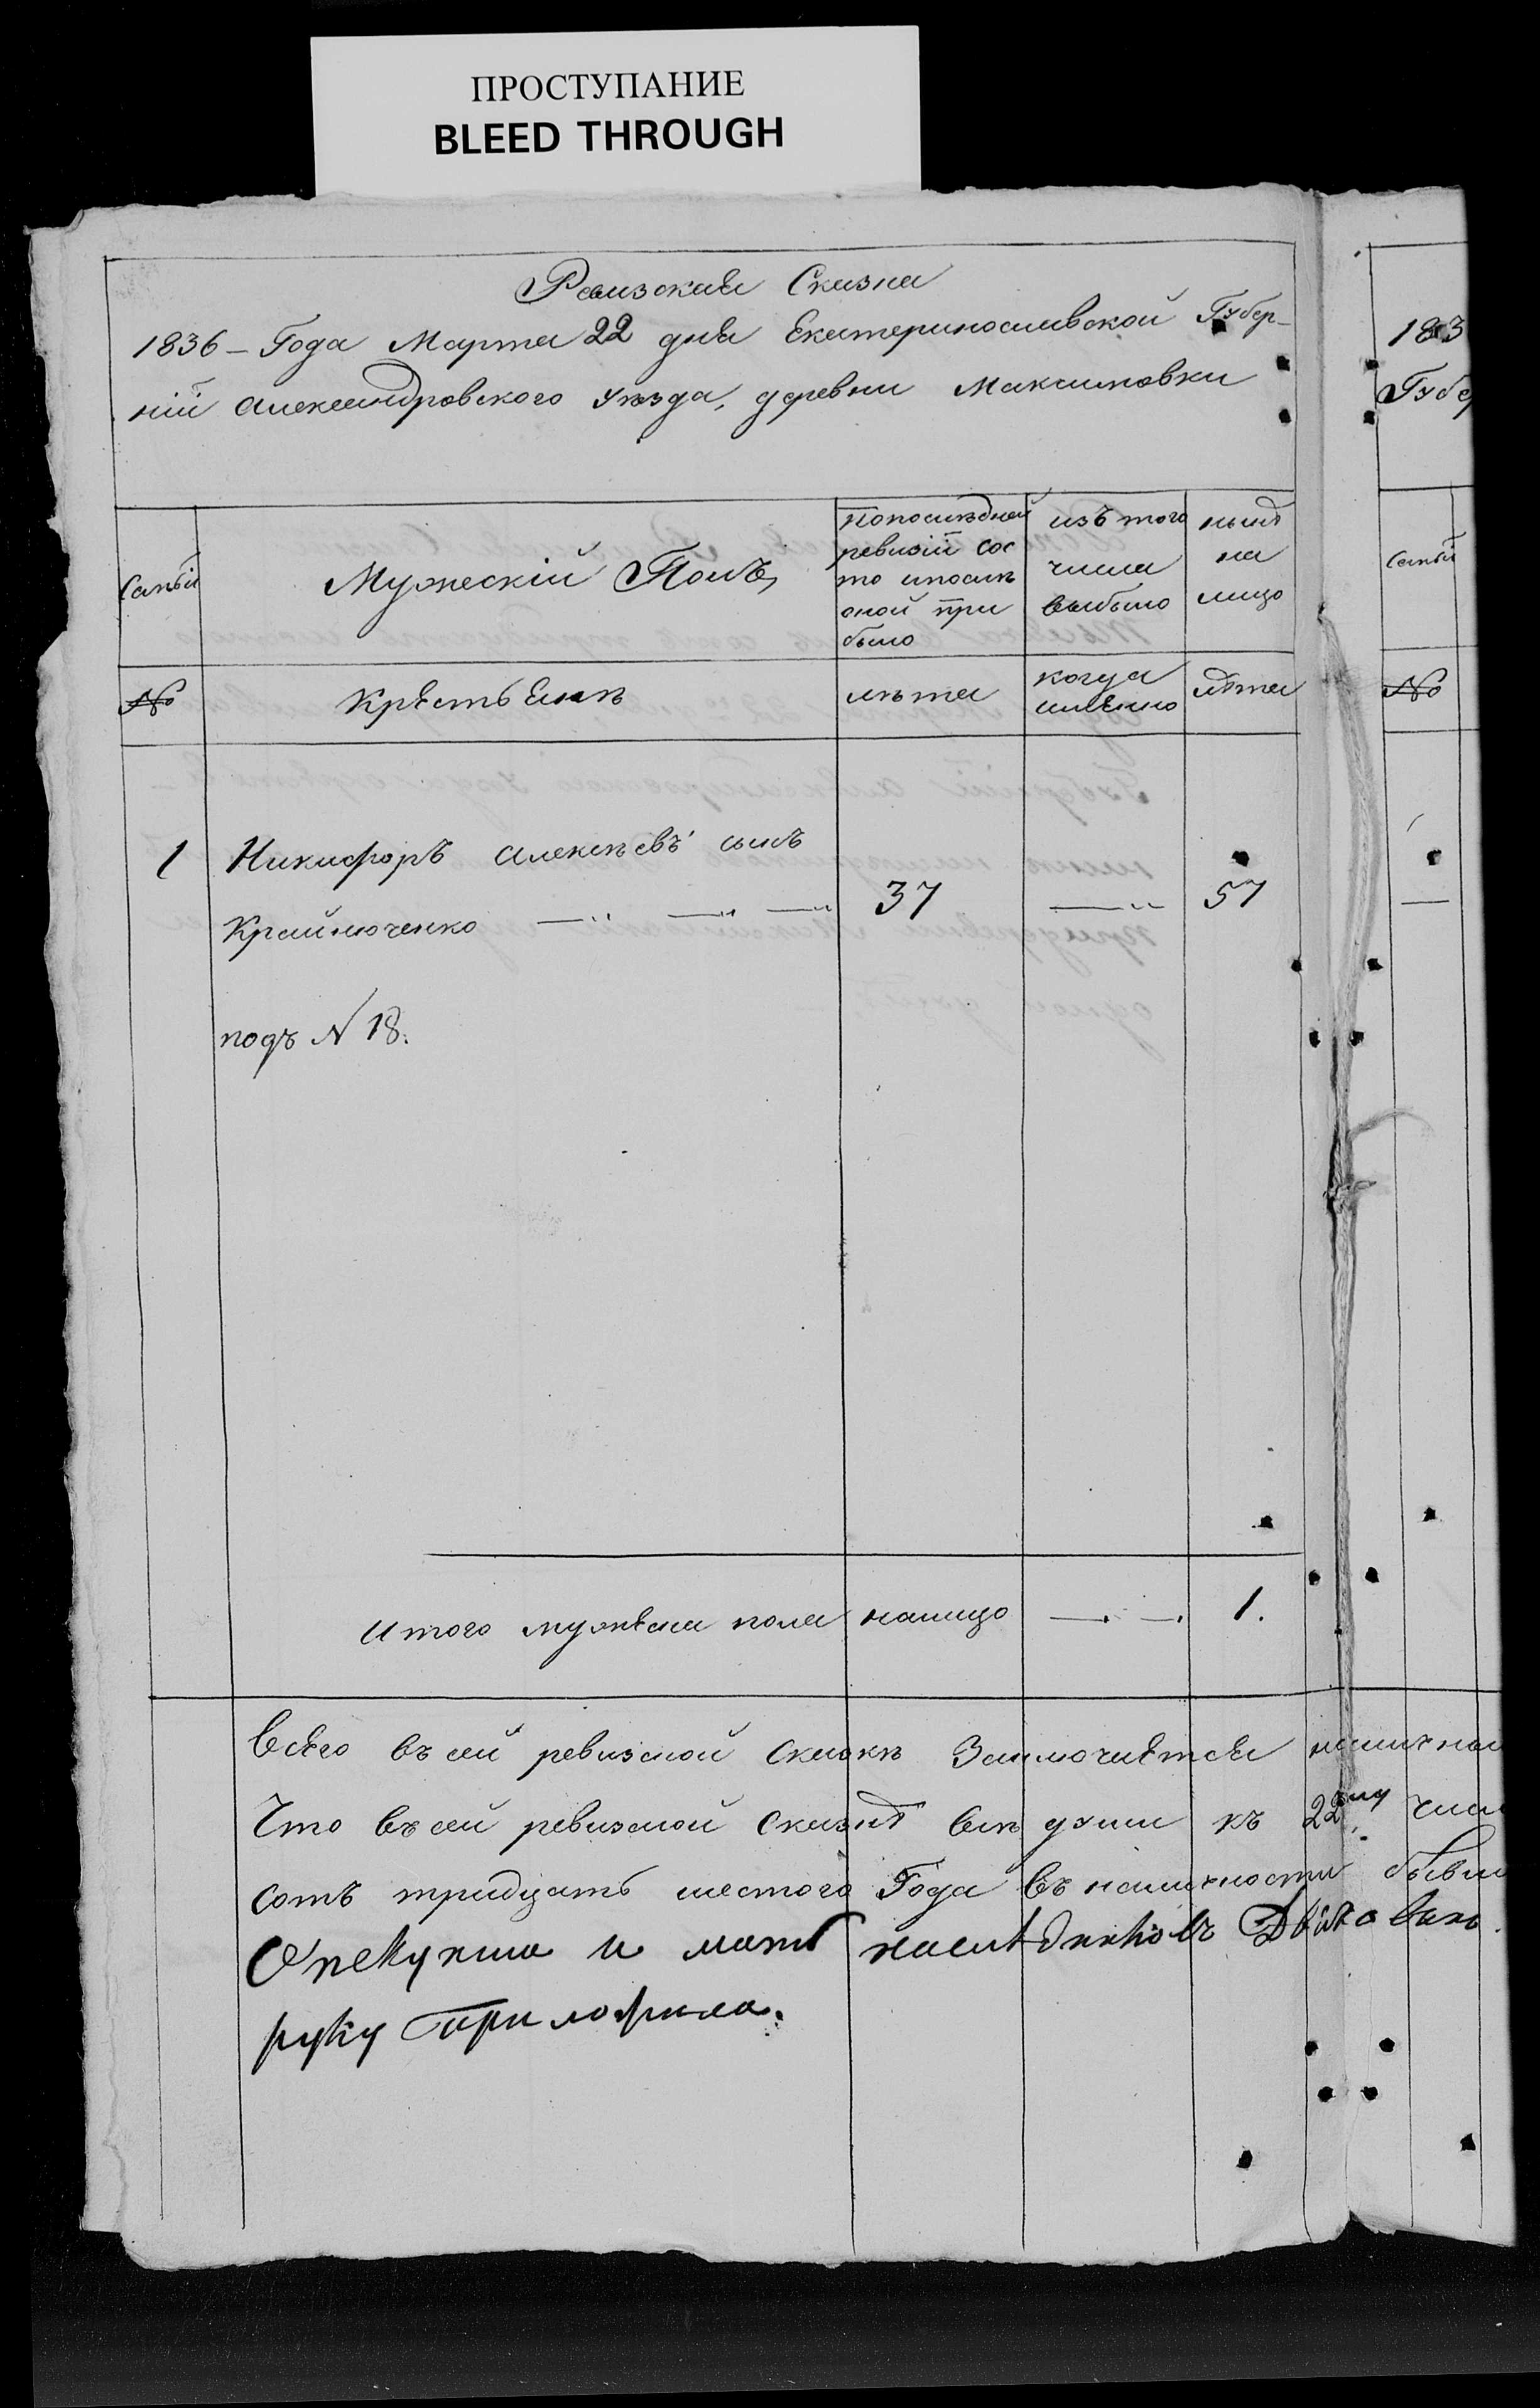 ПРОСТУПАНИЕ
BLEED THROUGH
Ревизская Сказка
1836 – Года Марта 22 дня Екатеринославской Губер-
ніи Александровского уѣзда, деревни Максимовки
Семьи
Мужескій Полъ,
попослѣдней
ревизіи сос
то ипослѣ
оной при
было
изъ того
числа
выбыло
нынѣ
на
лицо
№
Крестьянѣ
лѣта
когда
имѣнно
лѣта
1
Никифоръ Алексѣевъ сынъ
Крайнюченко
37
57
подъ N 18.
Итого мужеска пола налицо
1.
Всего въ сей ревизской Сказкѣ Заключается наличных
Что въ сей ревизской Сказкѣ всѣ души къ 22му числ
сотъ тридцать шестого Года въ наличности бывши
Опекунша и мать наслѣдниковъ
руку приложила.
183
Губер
Семьи
№